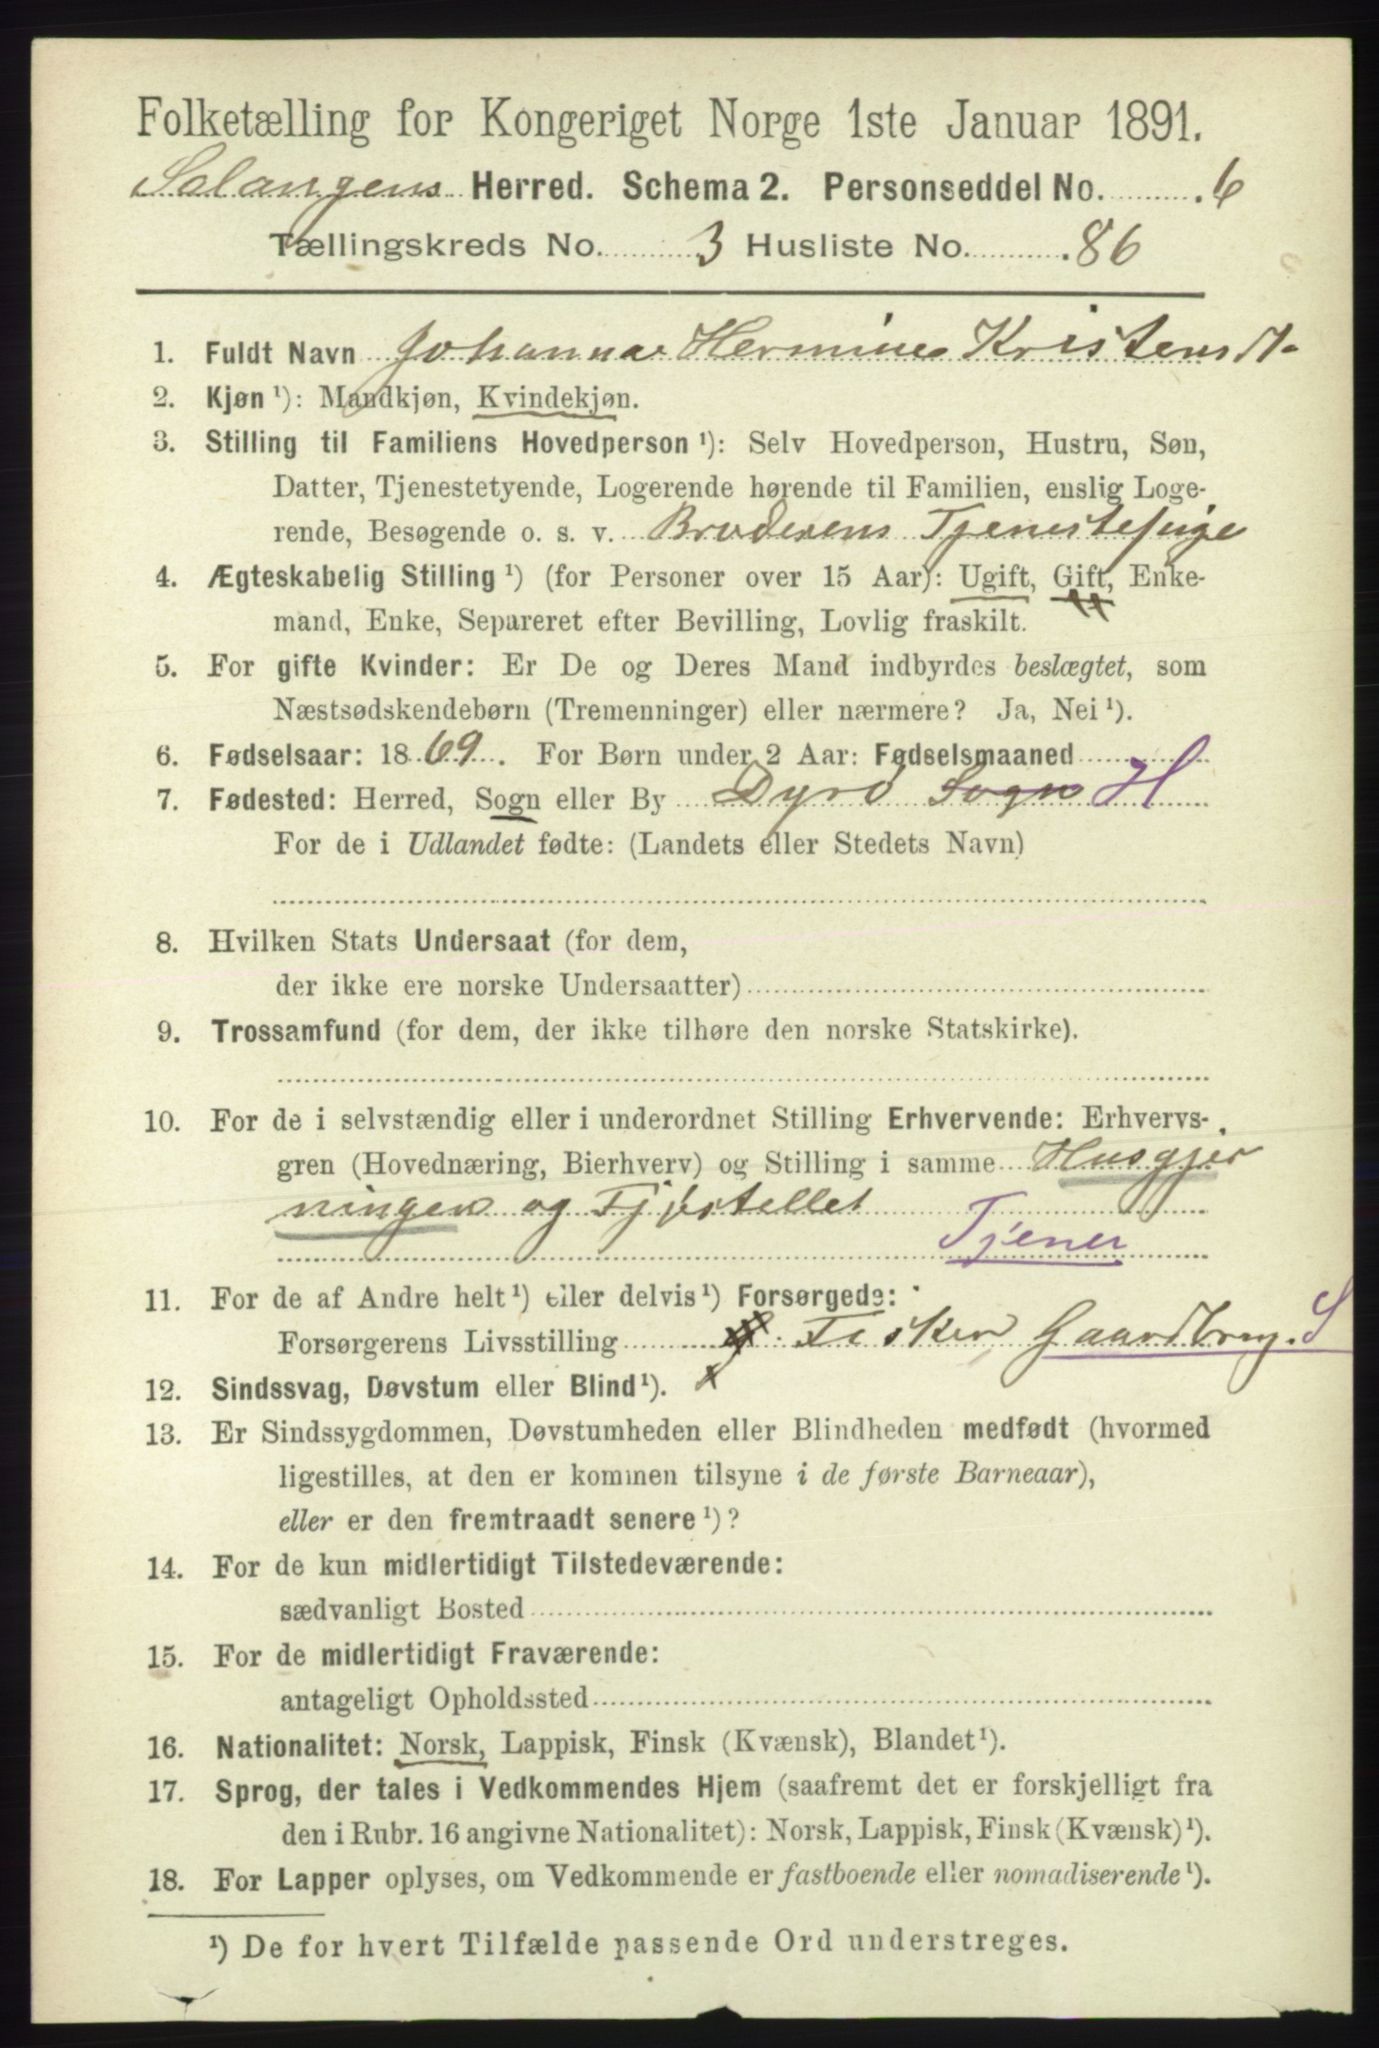 Folketælling for Kongeriget Norge 1ste Januar 1891.
Salangens Herred. Schema 2. Personseddel No. 6
Tællingskreds No. 3 Husliste No. 86
1. Fuldt Navn Johanna Hermine Kristens D.
2. Kjøn ¹): Mandkjøn, Kvindekjøn.
3. Stilling til Familiens Hovedperson ¹): Selv Hovedperson, Hustru, Søn,
Datter, Tjenestetyende, Logerende hørende til Familien, enslig Loge-
rende, Besøgende o. s. v. Broderens Tjenestepige
4. Ægteskabelig Stilling ¹) (for Personer over 15 Aar): Ugift, Gift, Enke-
mand, Enke, Separeret efter Bevilling, Lovlig fraskilt.
5. For gifte Kvinder: Er De og Deres Mand indbyrdes beslægtet, som
Næstsødskendebørn (Tremenninger) eller nærmere? Ja, Nei ¹).
6. Fødselsaar: 1869. For Børn under 2 Aar: Fødselsmaaned
7. Fødested: Herred, Sogn eller By Dyrø Sogn H
For de i Udlandet fødte: (Landets eller Stedets Navn)
8. Hvilken Stats Undersaat (for dem,
der ikke ere norske Undersaatter)
9. Trossamfund (for dem, der ikke tilhøre den norske Statskirke).
10. For de i selvstændig eller i underordnet Stilling Erhvervende: Erhvervs-
gren (Hovednæring, Bierhverv) og Stilling i samme Husgjer
ningen og Fjøstellet
Tjener
11. For de af Andre helt ¹) eller delvis ¹) Forsørgede:
Forsørgerens Livsstilling Fisker Gaardbrug. S
12. Sindssvag, Døvstum eller Blind ¹). x
13. Er Sindssygdommen, Døvstumheden eller Blindheden medfødt (hvormed
ligestilles, at den er kommen tilsyne i de første Barneaar),
eller er den fremtraadt senere ¹)?
14. For de kun midlertidigt Tilstedeværende:
sædvanligt Bosted
15. For de midlertidigt Fraværende:
antageligt Opholdssted
16. Nationalitet: Norsk, Lappisk, Finsk (Kvænsk), Blandet ¹).
17. Sprog, der tales i Vedkommendes Hjem (saafremt det er forskjelligt fra
den i Rubr. 16 angivne Nationalitet): Norsk, Lappisk, Finsk (Kvænsk) ¹).
18. For Lapper oplyses, om Vedkommende er fastboende eller nomadiserende ¹).
¹) De for hvert Tilfælde passende Ord understreges.